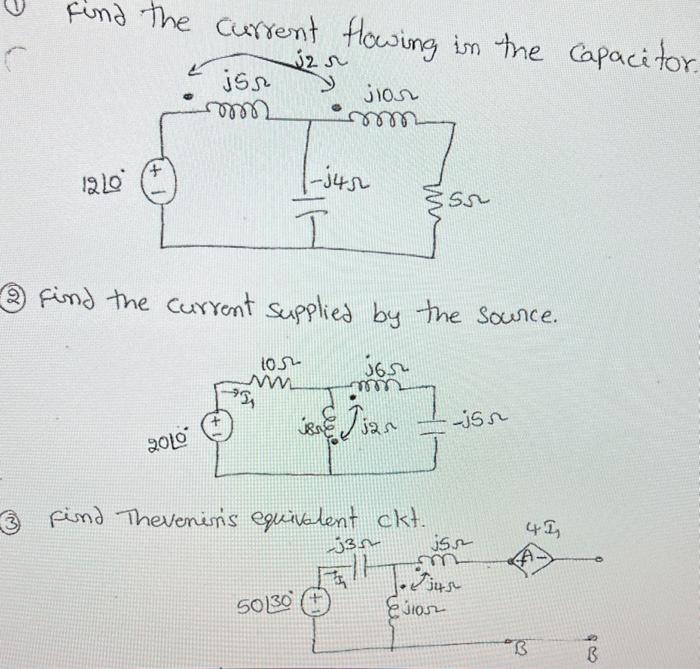 ① Find the current flowing in the capacitor.
j2Ω
j5Ω
j10Ω
12∠0°
+
-
-j4Ω
5Ω
② Find the current supplied by the source.
10Ω
j6Ω
I₁
20∠0°
+
-
j8Ω
j2Ω
-j5Ω
③ Find Thevenin's equivalent ckt.
4I₁
-j3Ω
j5Ω
I₁
j4Ω
50∠30°
+
j10Ω
B
B